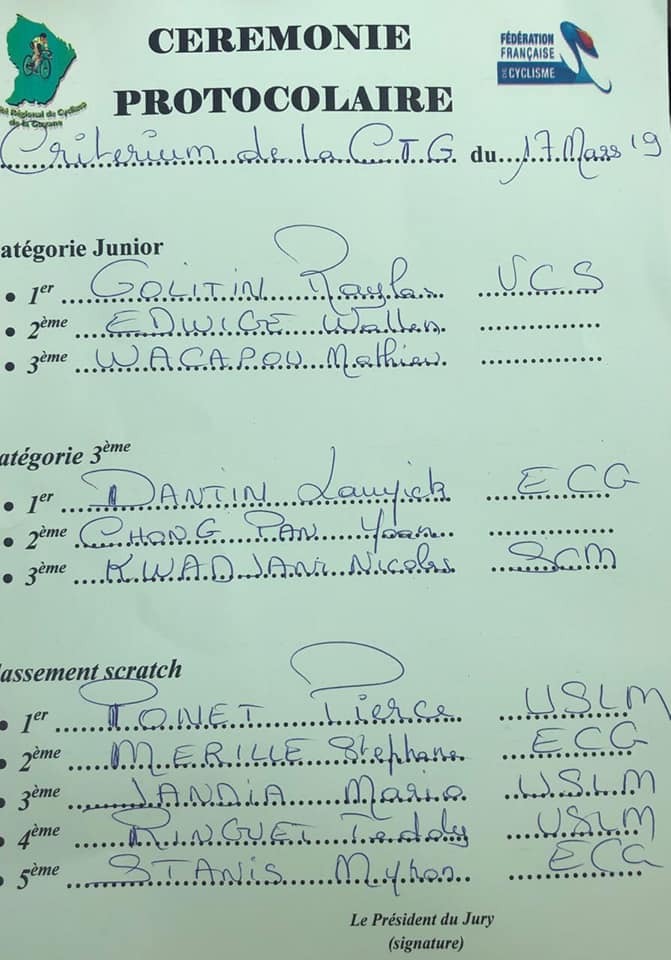 CEREMONIE
PROTOCOLAIRE
FÉDÉRATION
FRANÇAISE
DE CYCLISME
Régional de Cyclisme
de la Guyane
Criterium de la CTG du 17 Mars 19
atégorie Junior
1er GOLITIN VCS
2ème EDWIGE
3ème WACAPOU Mathieu
atégorie 3ème
1er DANTIN ECG
2ème CHONG PAN Yoan
3ème KWADJANI Nicolas SCM
lassement scratch
1er PONET Pierce USLM
2ème MERILLE Stephane ECG
3ème JANDIA Mario USLM
4ème RINGUET Teddy USLM
5ème STANIS ECG
Le Président du Jury
(signature)